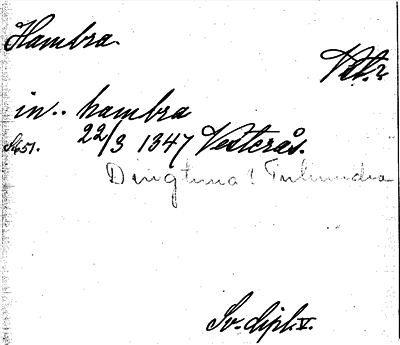 Hambra.
Vstr
in.. hambra
22/3 1347 Vesterås.
Dingtuna! Tuhundra
Sv. dipl. V.